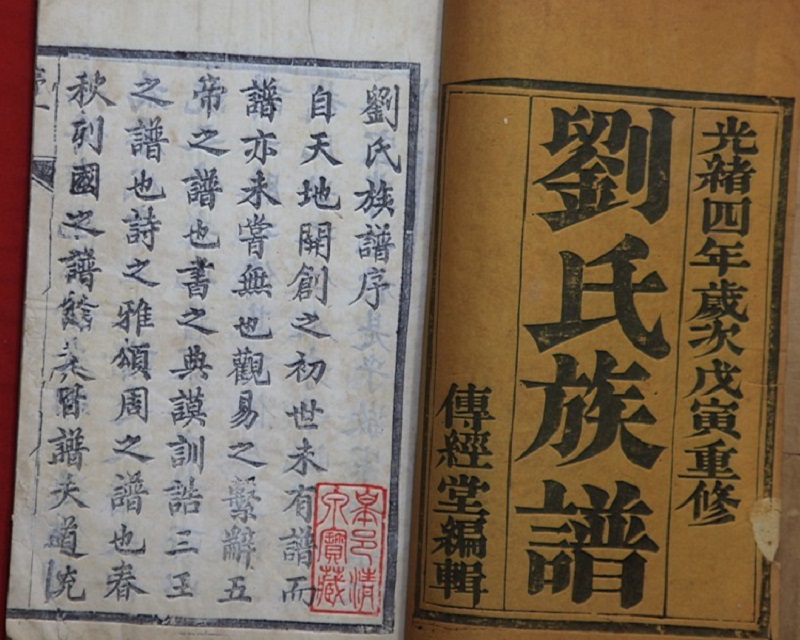 光緒四年歲次戊寅重修
劉氏族譜
傳經堂編輯
劉氏族譜序
自天地開創之初世未有譜而
譜亦未嘗無也觀易之繫辭五
帝之譜也書之典謨訓誥三王
之譜也詩之雅頌周之譜也春
秋列國之譜 皆譜夫道
寶藏